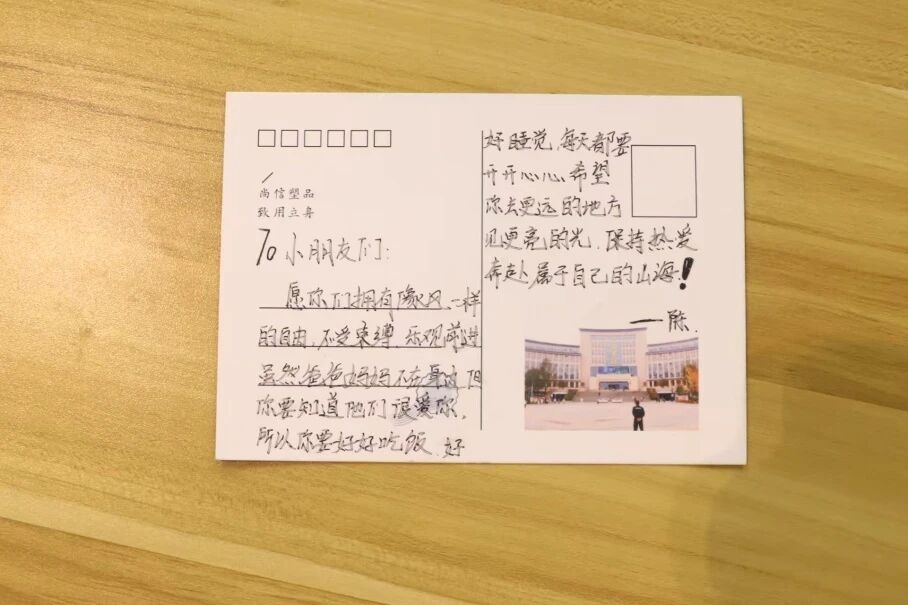 尚信塑品
致用立身
To 小朋友们:
愿你们拥有像风一样
的自由,不受束缚,乐观前进
虽然爸爸妈妈不在身边但
你要知道他们很爱你,
所以你要好好吃饭,好
好睡觉,每天都要
开开心心,希望
你去更远的地方
见更亮的光,保持热爱
奔赴属于自己的山海!